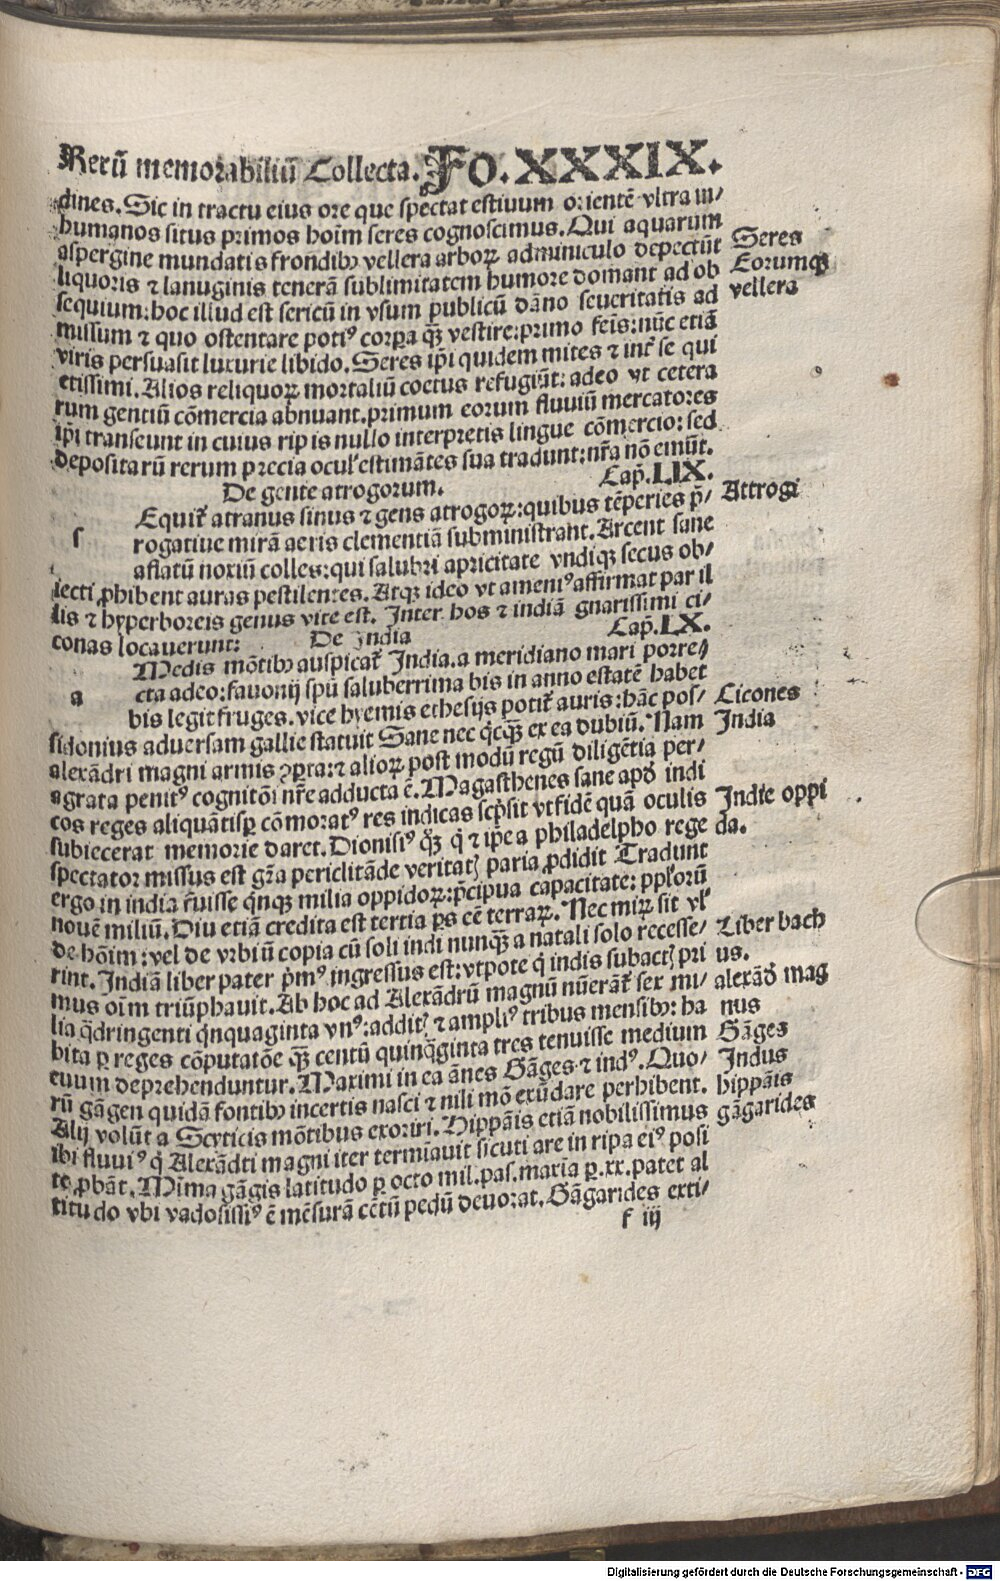 Rerū memorabiliū Collecta. FO. XXXIX.
dines. Sic in tractu eius ore que spectat estiuum orientē vltra in/
humanos situs primos hoīm seres cognoscimus. Qui aquarum
aspergine mundatis frondibꝫ vellera arboꝝ adminiculo depectūt
liquoris ⁊ lanuginis tenerā sublimitatem humore domant ad ob
sequium: hoc illud est sericū in vsum publicū dāno seueritatis ad
missum ⁊ quo ostentare potiꝰ corꝑa qꝫ̄ vestire: primo feīs: nūc etiā
viris persuasit luxurie libido. Seres ip̄i quidem mites ⁊ int̄ se qui
etissimi. Alios reliquoꝝ mortaliū coetus refugiūt: adeo vt cetera
rum gentiū cōmercia abnuant. primum eorum fluuiū mercatores
ip̄i transeunt in cuius ripis nullo interpretis lingue cōmercio: sed
depositarū rerum precia oculꝭ estimātes sua tradunt: nr̄a nō emūt.
De gente atrogorum. Cap̄. LIX.
Equit̄ atranus sinus ⁊ gens atrogoꝝ: quibus tēperies p̄/
s rogatiue mirā aeris clementiā subministrant. Arcent sane
aflatū noxiū colles: qui salubri apricitate vndiqꝫ secus ob/
iecti ꝓhibent auras pestilentes. Atqꝫ ideo vt ameniꝰ affirmat par il
lis ⁊ hyperboreis genus vite est. Inter hos ⁊ indiā gnarissimi ci/
conas locauerunt: De India Cap̄. LX.
Medis mōtibꝫ auspicat̄ India. a meridiano mari porre/
a cta adeo: fauonij spū saluberrima bis in anno estatē habet
bis legit fruges. vice hyemis ethesijs potit̄ auris: hāc pos/
sidonius aduersam gallie statuit Sane nec q̇cqꝫ̄ ex ea dubiū. Nam
alexādri magni armis ꝯꝑta: ⁊ alioꝝ post modū regū diligētia per/
agrata penitꝰ cognitōi nr̄e adducta ē. Magasthenes sane apd̄ indi
cos reges aliquātisꝑ cōmoratꝰ res indicas scp̄sit vt fidē quā oculis
subiecerat memorie daret. Dionisiꝰ qꝫ̄ q̇ ⁊ ip̄e a philadelpho rege
spectator missus est gr̄a periclitāde veritatꝭ paria ꝓdidit Tradunt
ergo in india fuisse q̇nqꝫ milia oppidoꝝ: p̄cipua capacitate: pplōrū
nouē miliū. Diu etiā credita est tertia ꝑs cē terraꝝ. Nec miꝝ sit vl̄
de hōim: vel de vrbiū copia cū soli indi nunqꝫ̄ a natali solo recesse/
rint. Indiā liber pater p̄mꝰ ingressus est: vtpote q̇ indis subactꝭ pri
mus oīm triūphauit. Ab hoc ad Alexādrū magnū nūerāt̄ sex mi/
lia q̄dringenti q̇nquaginta vnꝰ: additꝭ ⁊ ampliꝰ tribus mensibꝫ: ha
bita ꝑ reges cōputatōe qꝫ̄ centū quinq̄ginta tres tenuisse medium
euum deprehenduntur. Maximi in ea ānes Gāges ⁊ indꝰ. Quo/
rū gāgen quidā fontibꝫ incertis nasci ⁊ nili mō exūdare perhibent.
Alij volūt a Scyticis mōtibus exoriri. Hippāis etiā nobilissimus
ibi fluuiꝰ q̇ Alexādti magni iter termīauit sicuti are in ripa eiꝰ posi
te ꝓbāt. Mīma gāgis latitudo ꝑ octo mil. pas. maxīa ꝑ. xx. patet al
titudo vbi vadosissiꝰ ē mēsurā cētū pedū deuorat. Gāgarides exti/
f iij
Seres
Eorumqꝫ
vellera
Attrogi
Cicones
India
Indie oppi
da.
Liber bach
us.
alexād̄ mag
nus
Gāges
Indus
hippāis
gāgarides
Digitalisierung gefördert durch die Deutsche Forschungsgemeinschaft - DFG